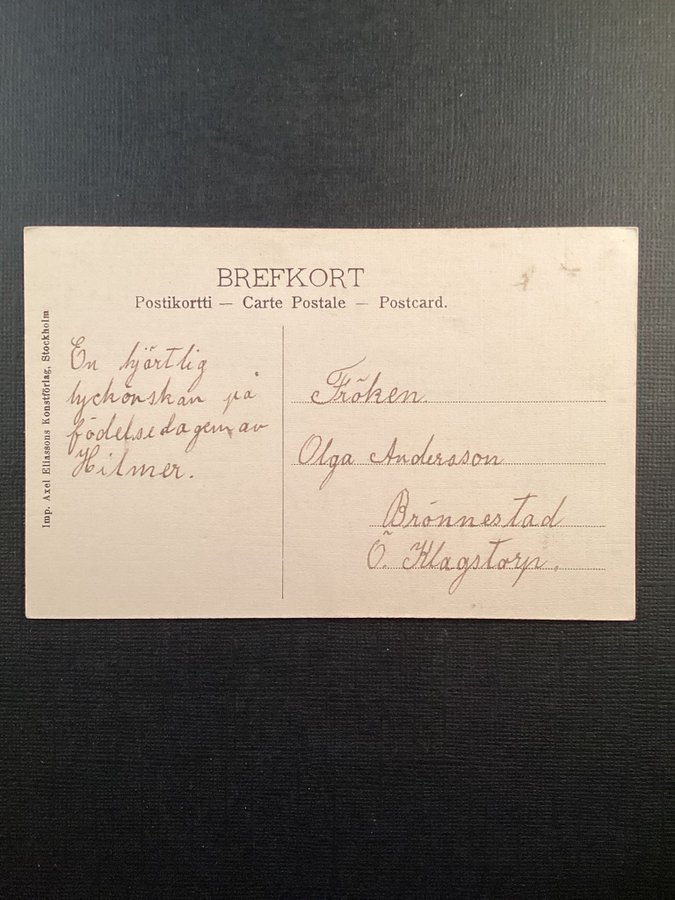 BREFKORT
Postikortti — Carte Postale — Postcard.
Imp. Axel Eliassons Konstförlag, Stockholm
En hjärtlig
lyckönskan på
födelsedagen av
Hilmer.
Fröken
Olga Andersson
Brönnestad
Ö. Klagstorp.